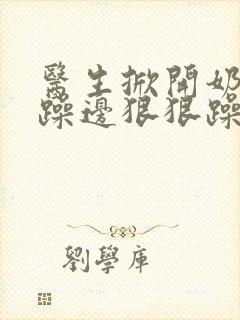 醫生掀開奶
躁邊狠狠躁
劉學庫